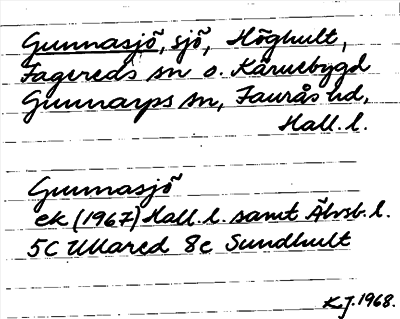 Gunnasjö, sjö, Höghult,
Fagereds sn o. Käruebygd
Gunnarps sn, Faurås hd,
Hall. l.
Gunnasjö
ek (1967) Hall. l. samt Älvsb. l.
5C Ullared 8e Sundhult
K.J. 1968.